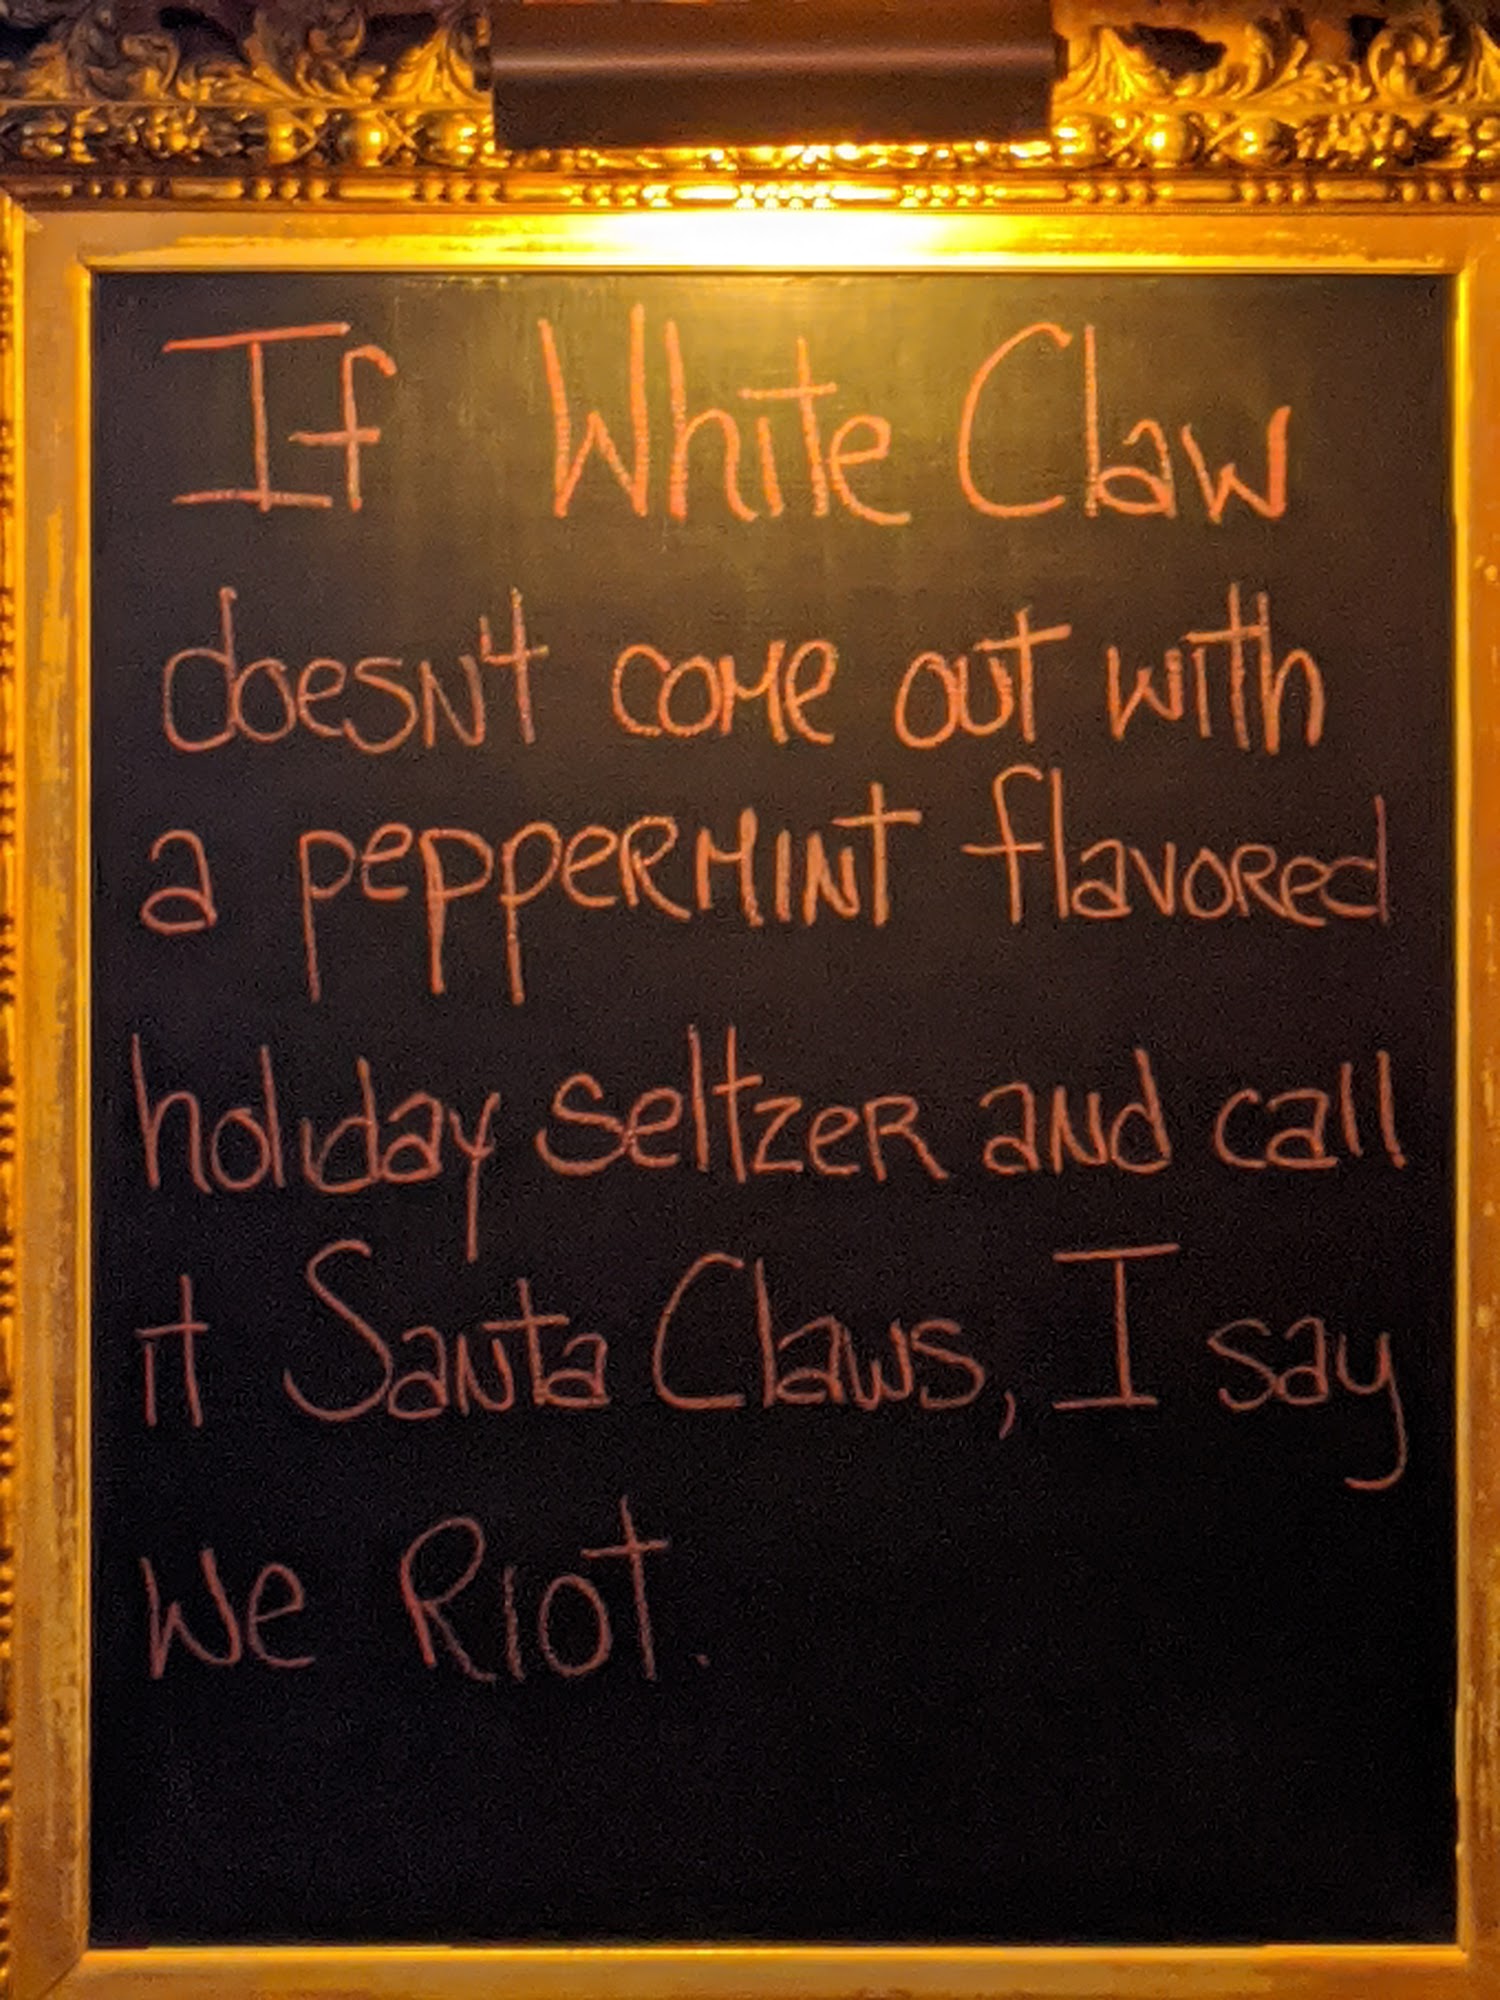 If White Claw
doesn't come out with
a peppermint flavored
holiday seltzer and call
it Santa Claws, I say
We Riot.